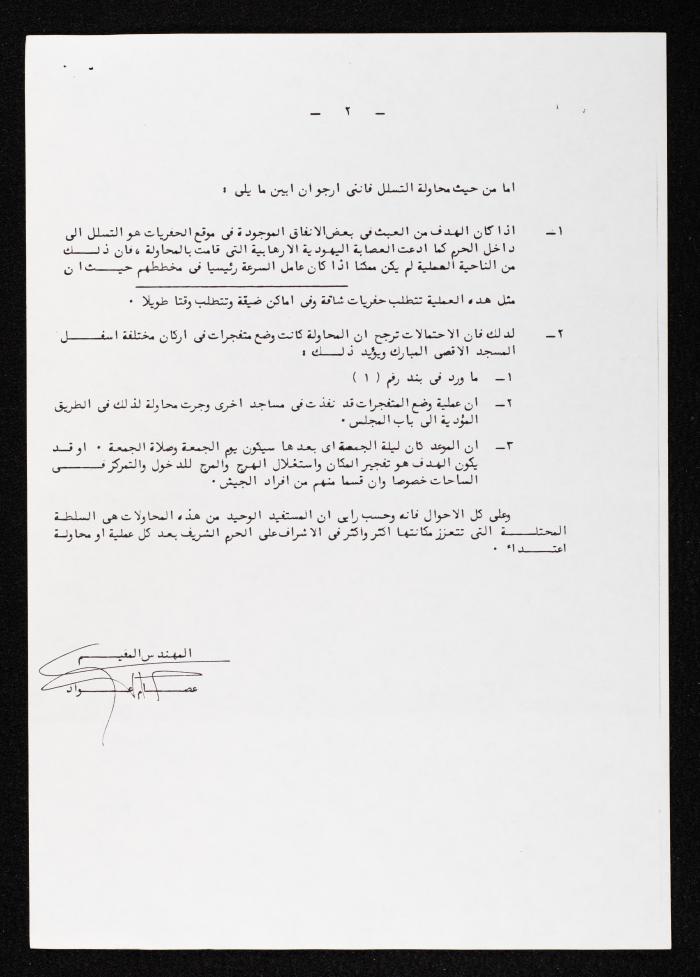 - ٢ -
اما من حيث محاولة التسلل فاننى ارجو ان ابين ما يلى :
١- اذا كان الهدف من العبث فى بعض الانفاق الموجودة فى موقع الحفريات هو التسلل الى
داخل الحرم كما ادعت العصابة اليهودية الارهابية التى قامت بالمحاولة ، فان ذلـــك
من الناحية العملية لم يكن ممكنا اذا كان عامل السرعة رئيسيا فى مخططهم حيـث ان
مثل هذه العملية تتطلب حفريات شاقة وفى اماكن ضيقة وتتطلب وقتا طويلا .
٢- لذلك فان الاحتمالات ترجح ان المحاولة كانت وضع متفجرات فى اركان مختلفة اسفـــل
المسجد الاقصى المبارك ويؤيد ذلـــك :
١- ما ورد فى بند رقم ( ١ )
٢- ان عملية وضع المتفجرات قد نفذت فى مساجد اخرى وجرت محاولة لذلك فى الطريق
المؤدية الى باب المجلس .
٣- ان الموعد كان ليلة الجمعة اى بعدها سيكون يوم الجمعة وصلاة الجمعة . او قــد
يكون الهدف هو تفجير المكان واستغلال الهرج والمرج للدخول والتمركز فـــى
الساحات خصوصا وان قسما منهم من افراد الجيش .
وعلى كل الاحوال فانه وحسب رايى ان المستفيد الوحيد من هذه المحاولات هى السلطة
المحتلـــة التى تتعزز مكانتها اكثر واكثر فى الاشراف على الحرم الشريف بعد كل عملية او محاولة
اعتـــداء .
المهندس المقيـــم
عصـــام عـــواد